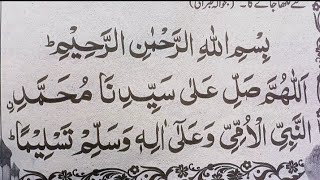 سے لکھا جائے گا۔ (بحوالہ طبرانی)
بِسْمِ اللهِ الرَّحْمٰنِ الرَّحِيْمِ ط
اَللّٰهُمَّ صَلِّ عَلٰى سَيِّدِنَا مُحَمَّدِنِ
النَّبِيِّ الْاُمِّيِّ وَعَلٰٓى اٰلِهٖ وَسَلِّمْ تَسْلِيْمًا ط